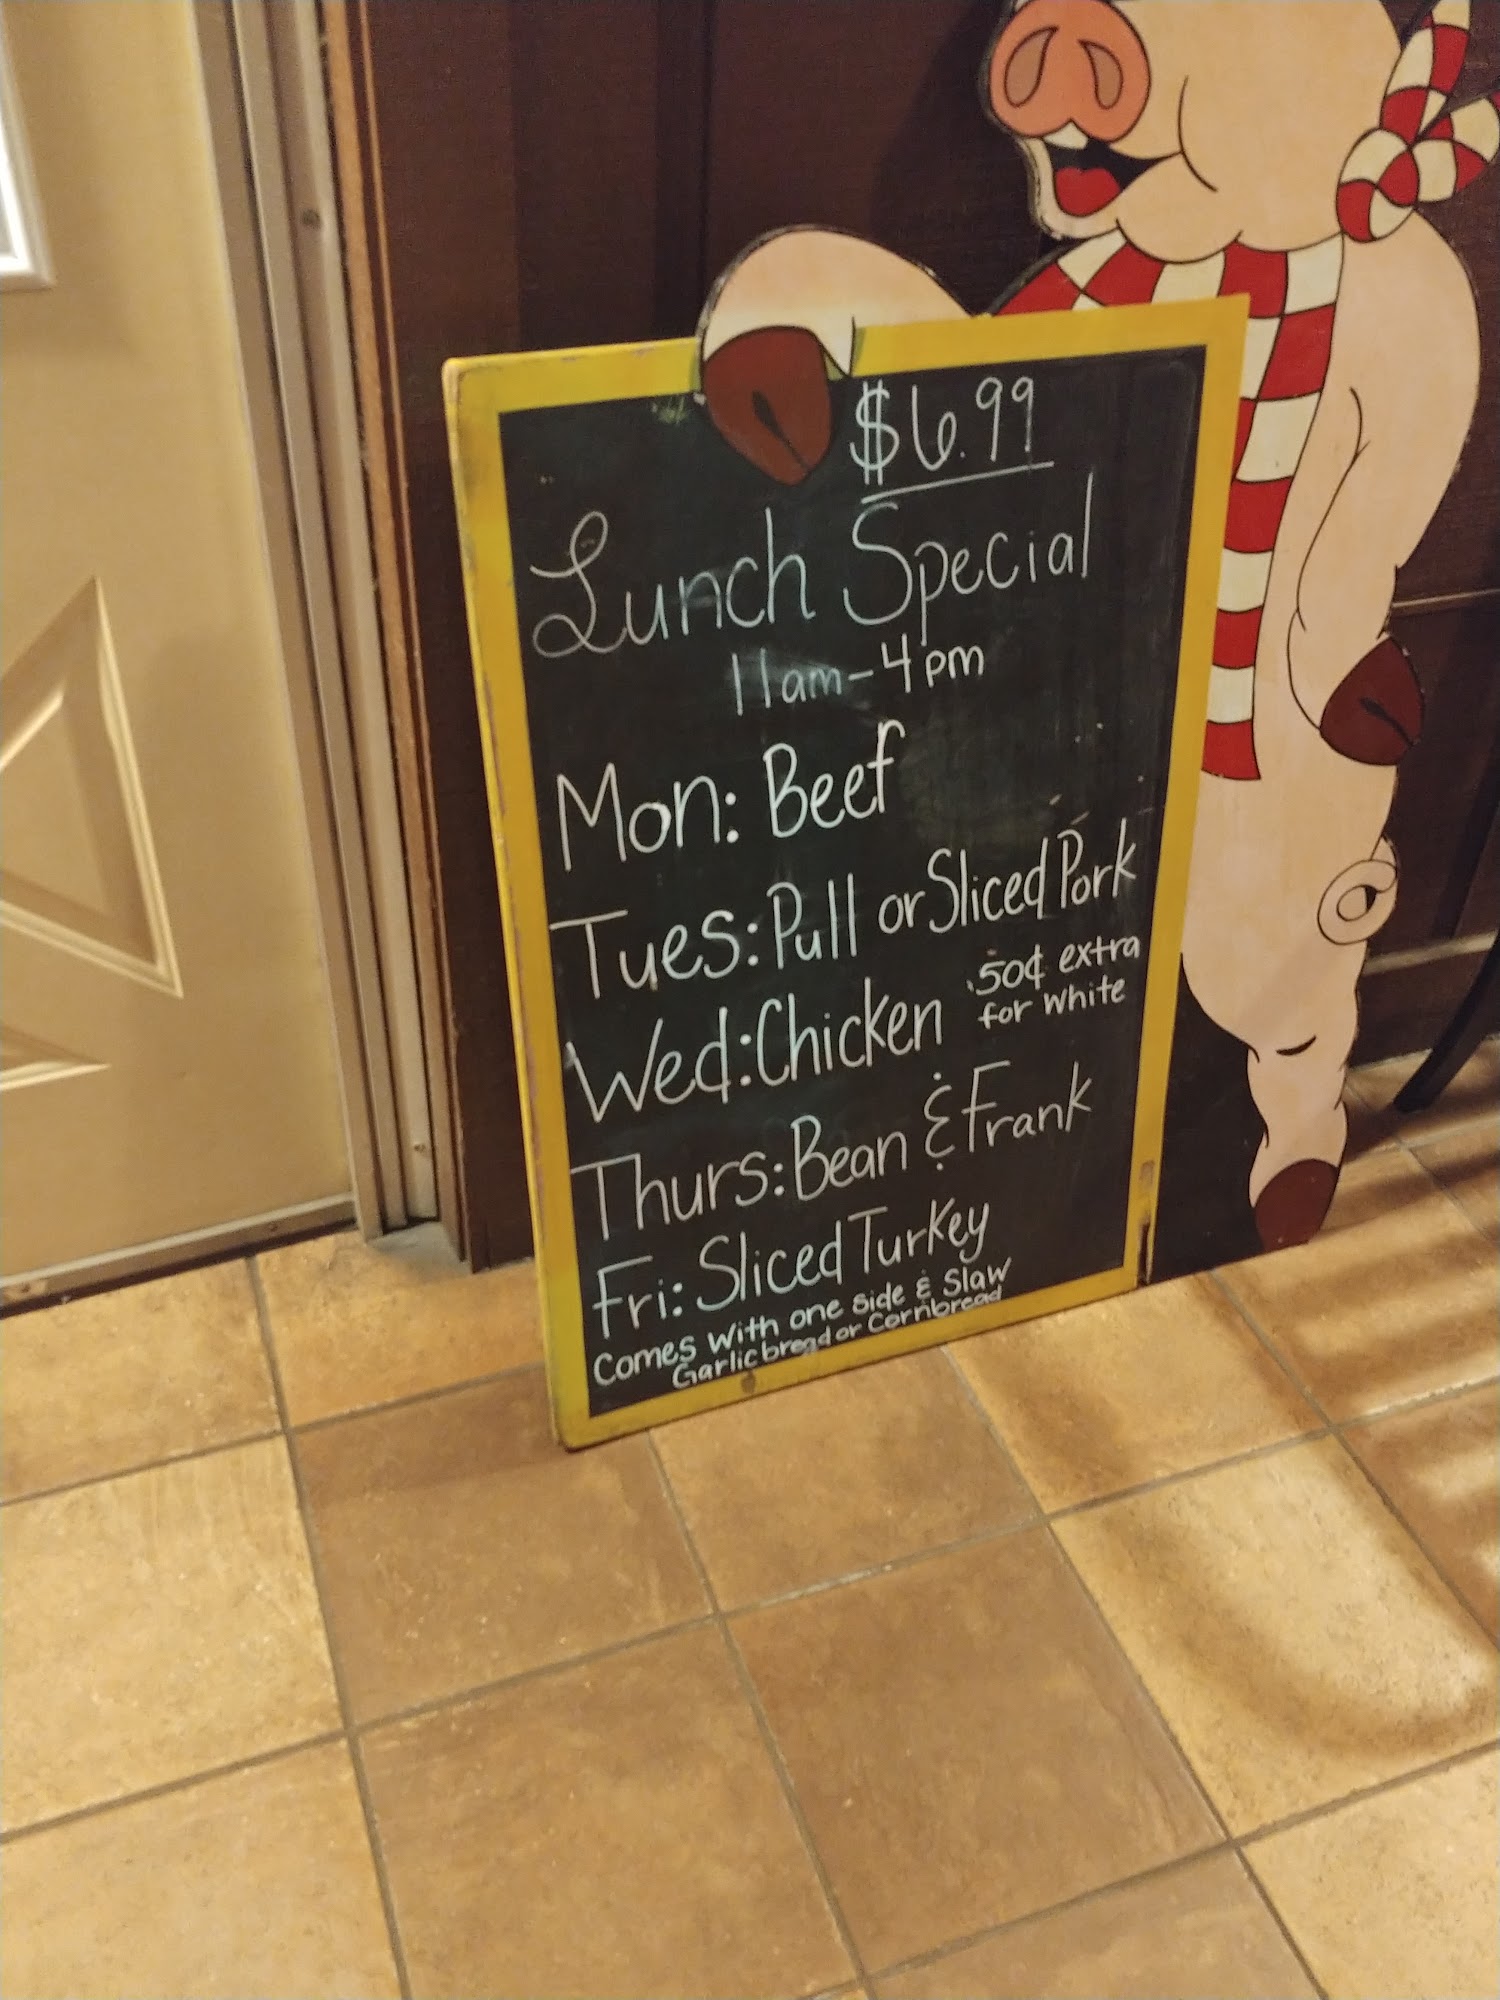 $6.99
Lunch Special
11am-4pm
Mon: Beef
Tues: Pull or Sliced Pork
Wed: Chicken .50¢ extra
for white
Thurs: Bean & Frank
Fri: Sliced Turkey
Comes with one side & Slaw
Garlicbread or Cornbread